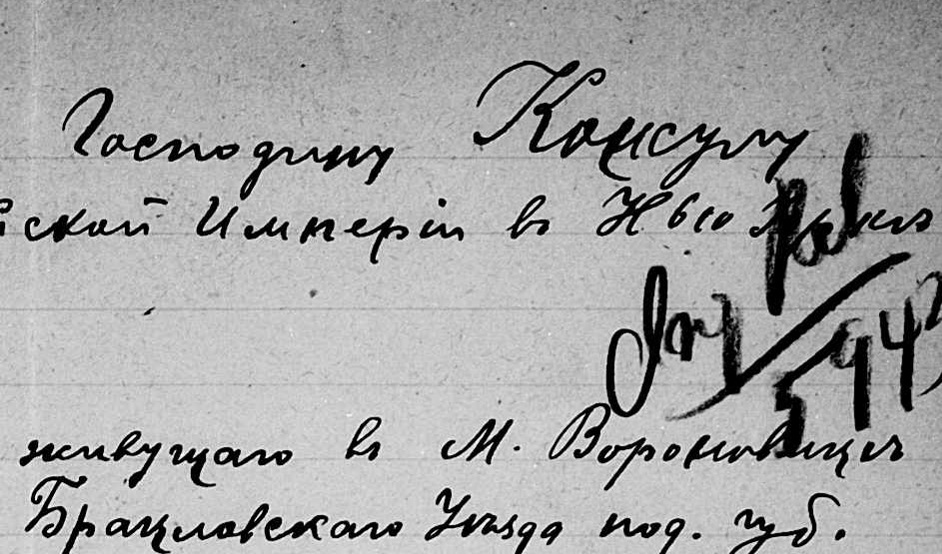 Господину Консулу
ской Имперіи в Нью
живущаго в М. Вороновицъ
Брацловскаго Уѣзда под. губ.